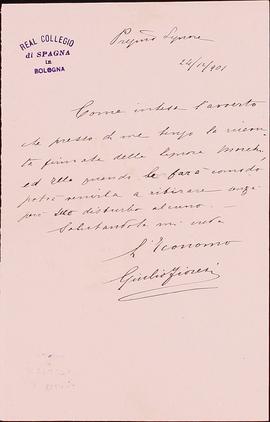 REAL COLLEGIO
di SPAGNA
in
BOLOGNA
Pregmo Signore
24/12/901
Come intesa l'avverto
che presso di me tengo la ricevu-
ta firmata della Signora
ed Ella quando le farà comodo
potrà venirla a ritirare senza
però disturbo alcuno.
Salutandola mi creda
L'Economo
Giulio Fioresi